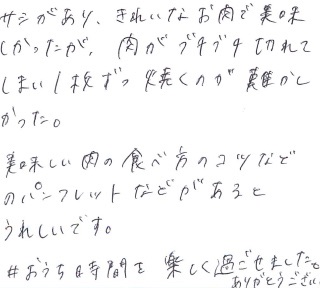 サシがあり、きれいなお肉で美味
しかったが、肉がブチブチ切れて
しまい1枚ずつ焼くのが難かし
かった。
美味しい肉の食べ方のコツなど
のパンフレットなどがあると
うれしいです。
#おうち時間を楽しく過ごせました。
ありがとうござい